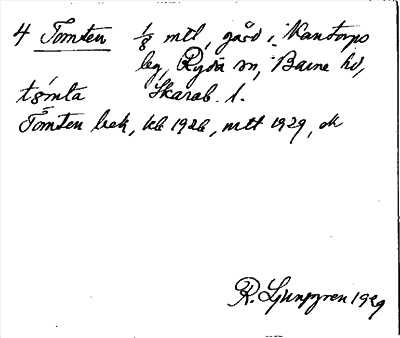 4 Tomten 1/8 mtl, gård i Vantorps
leg, Ryda sn, Barne hd,
tǫ̀mta Skarab. l.
Tomten bek, kb 1926, mtl 1929, ek
R. Ljunggren 1929